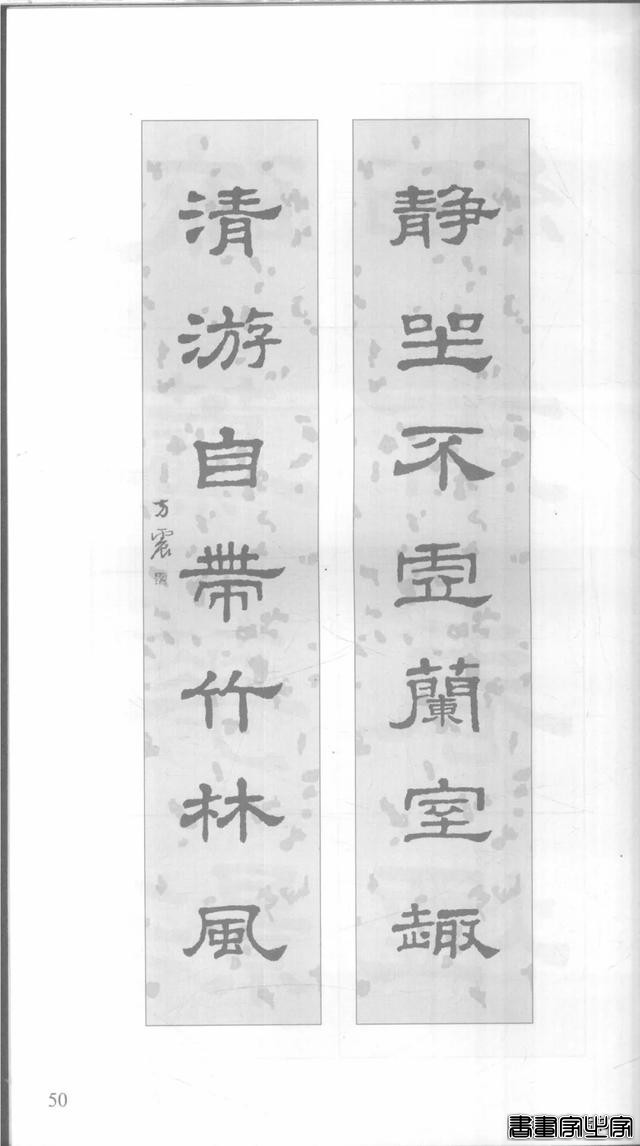 静坐不虛蘭室趣
清游自帶竹林風
方震
50
書畫家必字